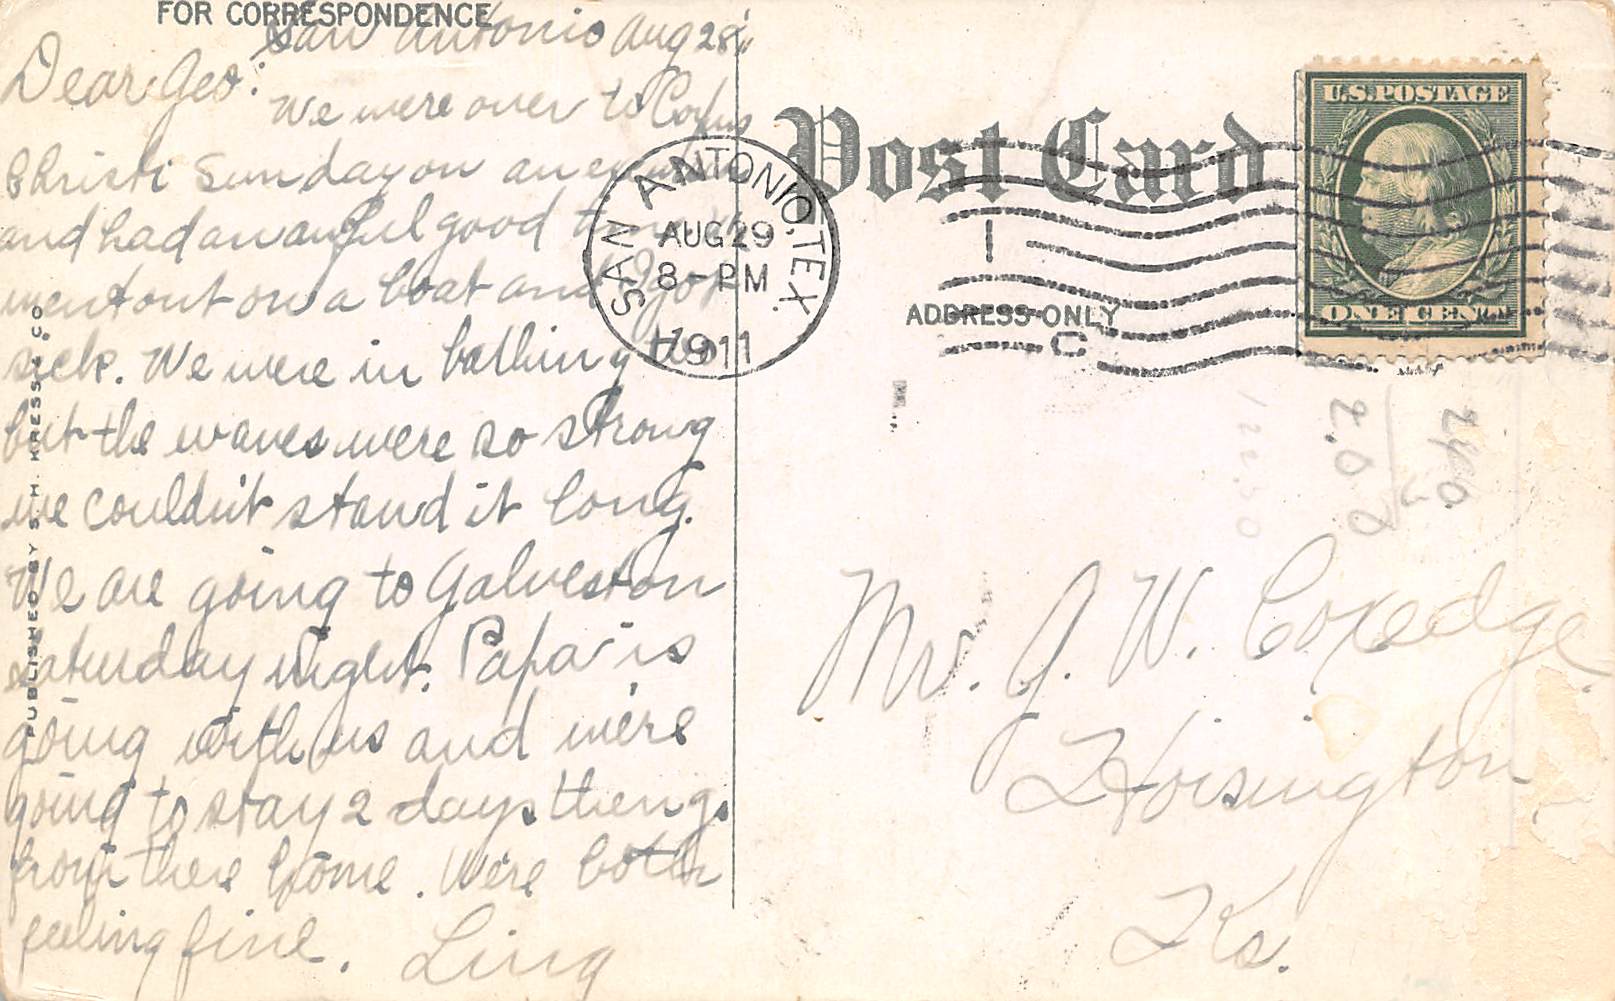 FOR CORRESPONDENCE
San Antonio Aug 28"
Dear Geo:
We were over to Corpus
Christi Sunday on an
and had an awful good
went out on a boat and I got
sick. We were in bathing too
but the waves were so strong
we couldn't stand it long.
We are going to Galveston
Saturday night. Papa is
going with us and we're
going to stay 2 days then go
from there home. We're both
feeling fine. Ling
PUBLISHED BY S. H. KRESS & CO
Post Card
SAN ANTONIO, TEX.
AUG 29
8 - PM
1911
1
C
U.S. POSTAGE
ONE CENT
ADDRESS ONLY
Mr. J. W. Coxedge.
Hoisington
Ks.